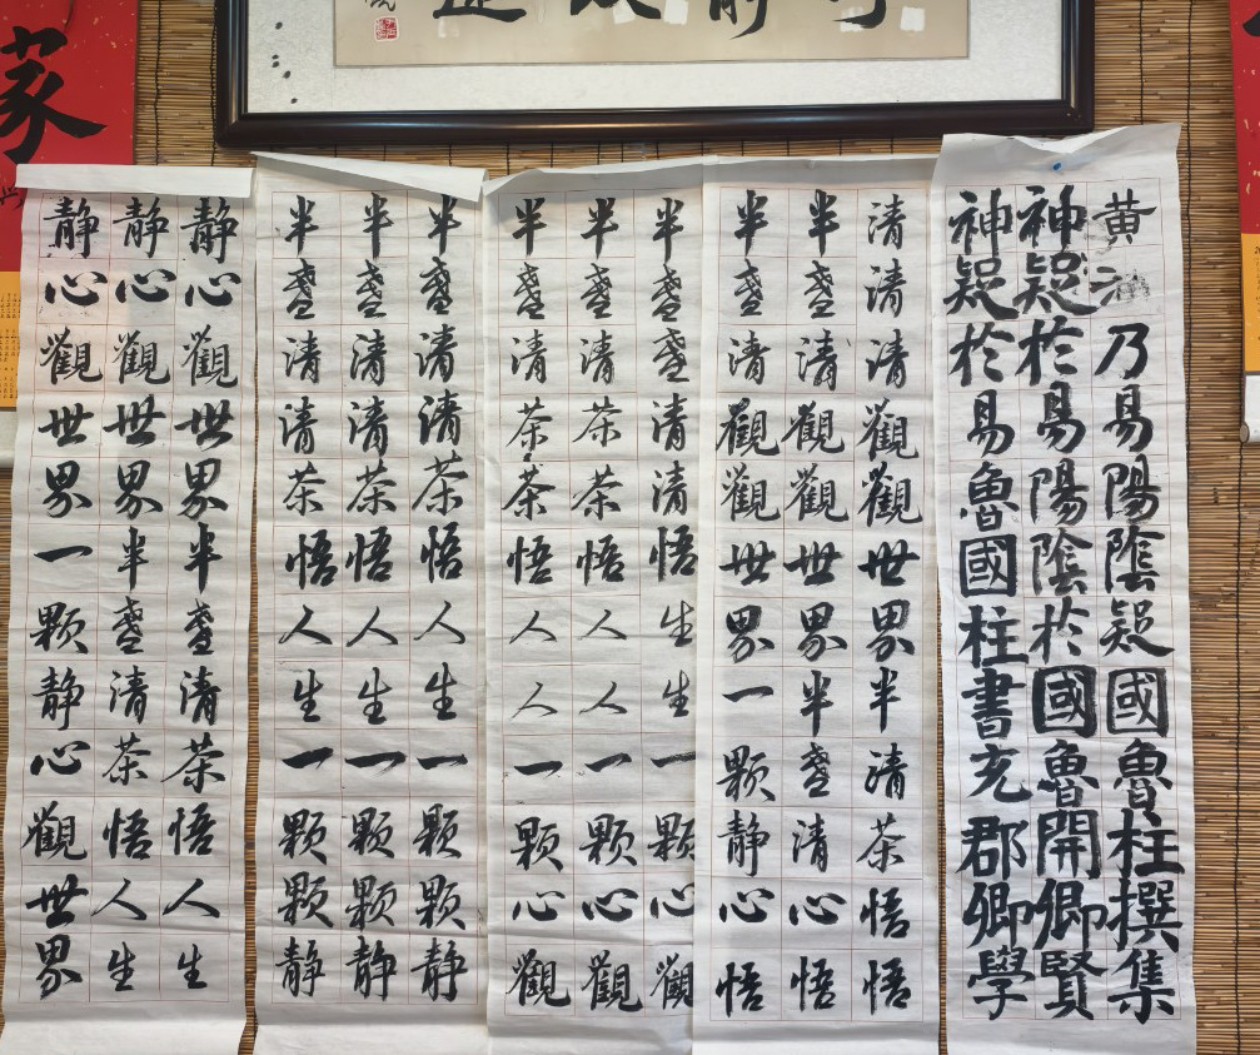 黄乃易陽陰疑國魯柱撰集
神疑於易陽陰於國魯開卿賢
神疑於易魯國柱書充郡卿學
清清清觀觀世界半清茶悟悟
半盞清觀觀世界半盞清心悟
半盞清觀觀世界一颗静心悟
半盞盞清清悟生生一颗心觀
半盞清茶茶悟人人一颗心觀
半盞清茶茶悟人人一颗心觀
半盞清清茶悟人生一颗颗静
半盞清清茶悟人生一颗颗静
半盞清清茶悟人生一颗颗静
静心觀世界半盞清茶悟人生
静心觀世界半盞清茶悟人生
静心觀世界一颗静心觀世界